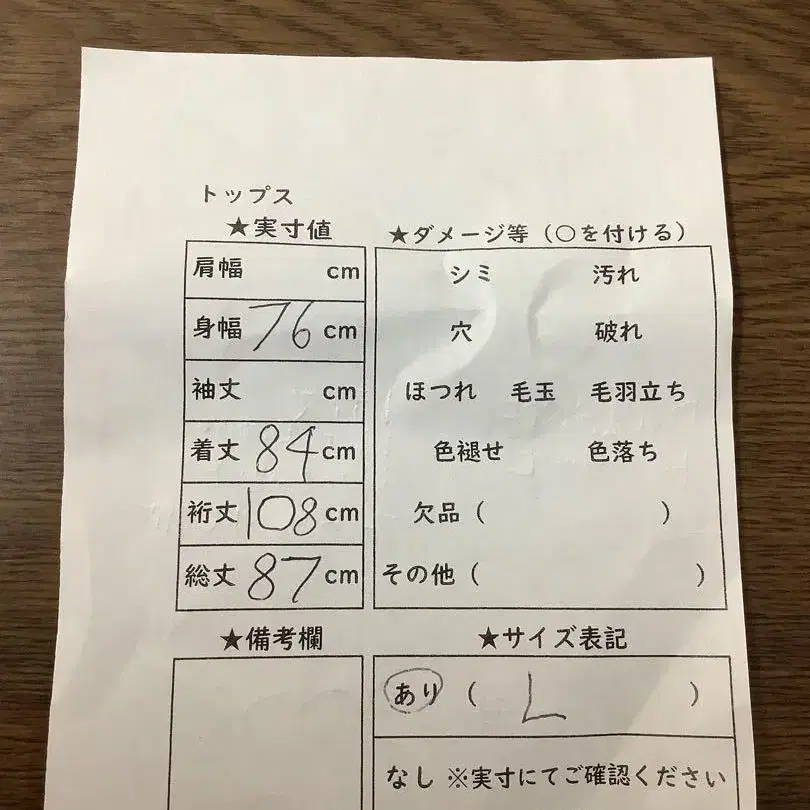 トップス
★実寸値
肩幅 cm
身幅 76 cm
袖丈 cm
着丈 84 cm
裄丈 108 cm
総丈 87 cm
★ダメージ等（○を付ける）
シミ 汚れ
穴 破れ
ほつれ 毛玉 毛羽立ち
色褪せ 色落ち
欠品（ ）
その他（ ）
★備考欄
★サイズ表記
あり（ L ）
なし ※実寸にてご確認ください